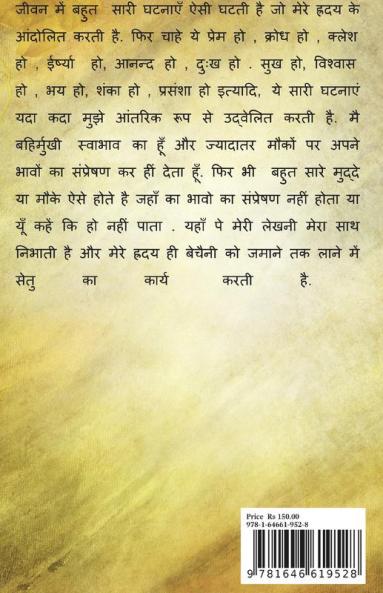 जीवन में बहुत सारी घटनाएँ ऐसी घटती है जो मेरे ह्रदय के
आंदोलित करती है. फिर चाहे ये प्रेम हो , क्रोध हो , क्लेश
हो , ईर्ष्या हो, आनन्द हो , दुःख हो . सुख हो, विश्वास
हो , भय हो, शंका हो , प्रसंशा हो इत्यादि, ये सारी घटनाएं
यदा कदा मुझे आंतरिक रूप से उद्वेलित करती है. मै
बहिर्मुखी स्वाभाव का हूँ और ज्यादातर मौकों पर अपने
भावों का संप्रेषण कर हीं देता हूँ. फिर भी बहुत सारे मुद्दे
या मौके ऐसे होते है जहाँ का भावो का संप्रेषण नहीं होता या
यूँ कहें कि हो नहीं पाता . यहाँ पे मेरी लेखनी मेरा साथ
निभाती है और मेरे ह्रदय ही बेचैनी को जमाने तक लाने में
सेतु का कार्य करती है.
Price Rs 150.00
978-1-64661-952-8
9 781646 619528